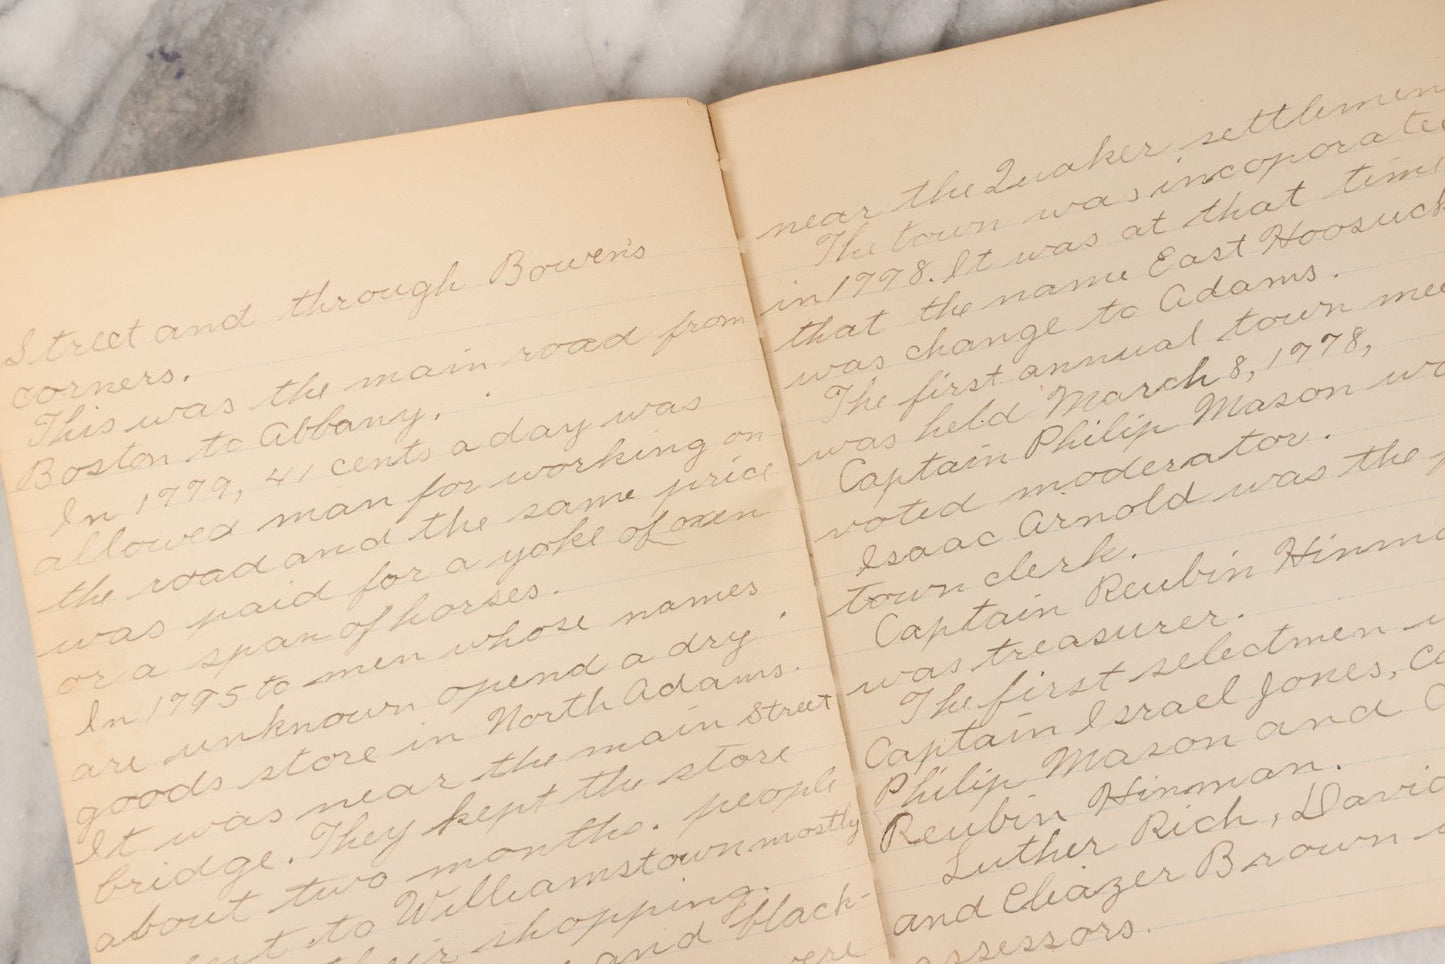 Street and through Bowen's
corners.
This was the main road from
Boston to Abbany.
In 1779, 41 cents a day was
allowed man for working on
the road and the same price
was paid for a yoke of oxen
or a span of horses.
In 1795 to men whose names
are unknown opend a dry
goods store in North Adams.
It was near the main Street
bridge. They kept the store
about two months. people
to Williamstown mostly
shopping.
and black-
were
near the Quaker settlemen
The town was incoporated
in 1778. It was at that time
that the name East Hoosuck
was change to Adams.
The first annual town mee
was held March 8, 1778,
Captain Philip Mason wa
voted moderator.
Isaac Arnold was the
town clerk.
Captain Reubin Hinma
was treasurer.
The first selectmen w
Captain Israel Jones, Ca
Philip Mason and
Reubin Hinman.
Luther Rich, David
and Eliazer Brown
assessors.